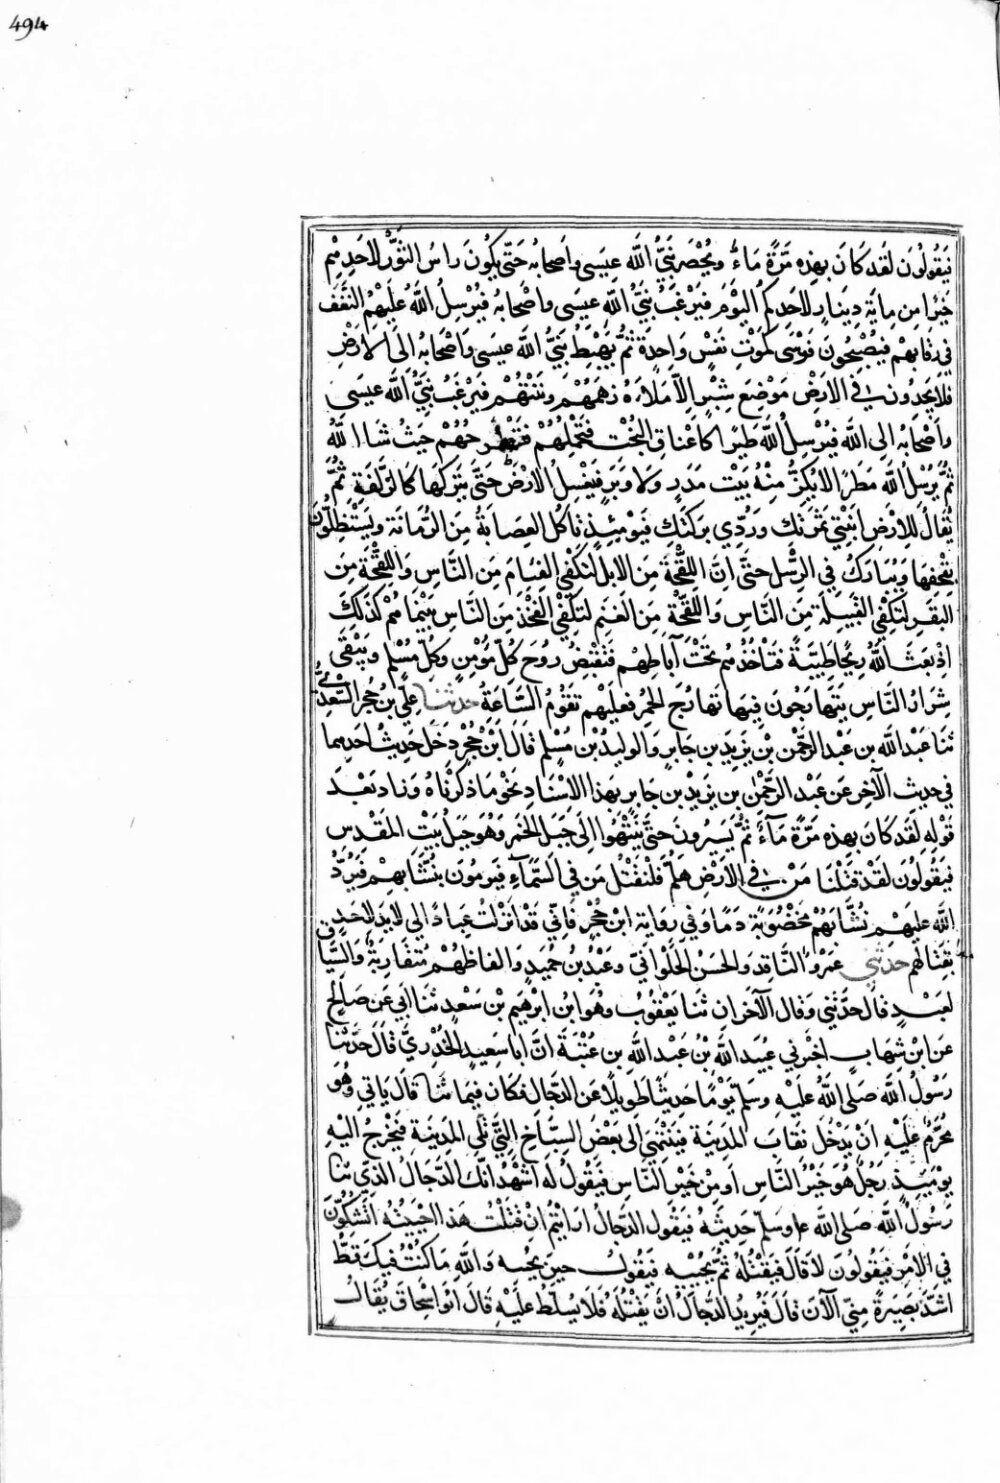 494
فَيَقُولُونَ لَقَد كَانَ بِهٰذِه مَرَّةً مَاءٌ وَيُحْصَر نَبِيُّ اللّٰه عِيسَى وأصحابُه حَتّى يَكُونَ راسُ الثَوْر لِأحَدِهِم
خَيرًا مِن مِاية دِينَارٍ لأحدِكُمُ اليَوْمَ فَيَرْغَبُ نَبِيُّ اللّٰه عِيسَى واصْحابُه فَيُرْسِلُ اللّٰهُ عَلَيْهِمُ النَّغَفَ
في رِقَابِهِمْ فَيُصْبِحُونَ فَرْسَى كَمَوْتِ نَفْسٍ وَاحِدَة ثُمَّ يَهْبِطُ نَبِيُّ اللّٰه عِيسى وَأصْحَابُه الَى الأرْضِ
فَلَا يَجِدُونَ في الأرْضِ مَوْضِعَ شِبْرٍ اِلَّا مَلَأَهُ زهَمُهُمْ وَنَتْنُهُمْ فَيَرْغَبُ نَبِيُّ اللّٰه عِيسَى
وأصْحَابُه اِلى اللّٰه فَيُرْسِلُ اللّٰه طَيْرًا كَأعْنَاقِ البُخْت فَتَحْمِلُهُمْ فَتَطْرَحُهُمْ حَيثُ شَا اللّٰهُ
ثُمَّ يُرْسِلُ اللّٰه مَطَرًا لايَكِنُّ مِنْهُ بَيْت مَدَرٍ وَلَا وَبَرٍ فَيَغْسِلُ الأرْضَ حَتَّى يَتْرُكَهَا كَالزَّلَفَةِ ثُمَّ
يُقَالُ لِلأرْضِ أنبِتِي ثَمَرَتَكِ وَرُدِّي بَرَكَتَكِ فَيَوْمَئِذٍ تاكُل العِصَابَةُ مِنَ الرُّمَانَة وَيَسْتَظِلُّونَ
بِقِحْفِهَا وَيُبَارَكُ فِي الرِّسْلِ حَتّى اِنَّ اللِّقْحَةَ مِنَ الابِل لَتَكْفِي الفِيَامَ مِنَ النَّاسِ وَاللِّقْحَة مِنَ
البَقَرِ لَتَكْفِي القَبِيلَةَ مِنَ النَّاس وَاللِّقْحَة مِنَ الغَنَمِ لَتَكْفِي الفَخْذَ مِنَ النَّاسِ بَيْنَمَا هُمْ كَذٰلِكَ
اِذْ بَعَثَ اللّٰهُ رِيحًا طَيِّبَةً فَتَاخُذُهُم تَحْتَ آبَاطِهِم فَتَقْبِضُ رُوحَ كُلِّ مُؤمِنٍ وَكُلِّ مُسْلِمٍ وَيَبْقَى
شِرَارُ النَّاسِ يَتَهَارَجُونَ فِيهَا تَهَارُجَ الحُمُرِ فَعَلَيْهِم تَقُومُ السَّاعَةُ حدثنا عَلِيّ بن حُجْرٍ السَّعْدِيّ
ثنَا عَبدُ اللّٰه بن عَبدِ الرَّحْمٰن بن يَزِيدَ بن جَابِرٍ وَالوَليدُ بْن مُسْلِمٍ قَالَ ابْنُ حُجْرٍ دَخَلَ حَدِيثُ احَدِهِما
في حديث الآخر عَن عَبْدِ الرَّحْمٰنِ بنِ يَزِيدَ بن جابِرٍ بِهٰذا الاسْنَادِ نَحْوَ مَا ذكَرْنَاهُ وَزَادَ بَعْدَ
قَوْلِهِ لَقَد كَانَ بِهذِه مَرَّةً مَآءٌ ثُمَّ يَسِيرُونَ حَتّى يَنْتَهُوا اِلى جَبَلِ الخَمَرِ وَهُوَ جَبَلُ بَيْتِ المَقْدِسِ
فَيَقُولُونَ لَقَدْ قَتَلْنَا مَنْ في الأرْضِ هَلُمَّ فَلْنَقْتُل مَن فِي السَّمَآءِ فَيَرمُونَ بِنُشَّابِهِمْ فَيَرُدُّ
اللّٰه عَلَيهِم نُشَّابَهُمْ مَخْضُوبَةً دَمًا وَفي رِوَايَة ابن حُجْرٍ فَإنّي قَدْ أنْزَلْتُ عِبَادًا لي لايدَ لِأحَدٍ
بِقِتَالِهِم حَدَثني عَمْرٌو النَّاقِد وَالحَسَنُ الحُلْوَانِيّ وَعَبْدُ بن حُمَيدٍ وَالفَاظُهُمْ مُتَقَارِبَةٌ وَالسِّيَاقُ
لِعَبْدٍ قَالَ حَدَّثَنِي وَقَالَ الآخَرَانِ ثَنَا يَعْقُوبُ وَهُوَ ابْنُ ابْرٰهِيمَ بْنِ سَعْدٍ ثَنَا ابي عَن صَالِحٍ
عَنِ ابْنِ شِهَابٍ اخْبَرَني عُبَيدُ اللّٰه بْنُ عَبْدِ اللّٰه بنِ عُتْبَةَ أنَّ أبَا سَعِيدٍ الخُدْرِيَّ قَالَ حَدَّثَنَا
رَسُولُ اللّٰه صَلى اللّٰهُ عَلَيْهِ وَسَلّم يَوْمًا حَدِيثًا طَوِيلًا عَنِ الدَّجَّالِ فَكَانَ فِيمَا ثَنَا قَالَ يَاتِي وَهُوَ
مُحَرَّمٌ عَلَيْهِ انْ يَدْخُلَ نِقَابَ المَدِينَةِ فَيَنْتَهِي اِلَى بَعْضِ السِّبَاخِ الَّتِي تَلِي المَدِينَةَ فَيَخْرُجُ اليْهِ
يَوْمَئِذٍ رَجُلٌ هُوَ خَيْرُ النَّاسِ أو مِنْ خَيْرِ النَّاسِ فَيَقُولُ لَه اشْهَدُ انَّكَ الدَّجَّالُ الَّذِي ثنَا
رَسُولُ اللّٰه صَلى اللّٰه عل وسَلّم حَدِيثَهُ فَيَقُولُ الدَّجَّالُ ارايْتُم انْ قَتَلْتُ هَذا ثم احْيَيْتُه أتَشُكُّونَ
في الامْرِ فَيَقُولُونَ لَا قَالَ فَيَقْتُلُهُ ثُمَّ يُحْيِيه فَيَقُولُ حِينَ يُحْييه وَاللّٰهِ مَا كُنْتُ فِيكَ قَطُّ
اشَدَّ بَصِيرَةً مِنِّي الآنَ قَالَ فَيُرِيدُ الدَّجَّالُ أنْ يَقْتُلَهُ فَلَا يُسَلَّطُ عَلَيْهِ قَالَ ابُوا إسْحَاقَ يُقَالُ